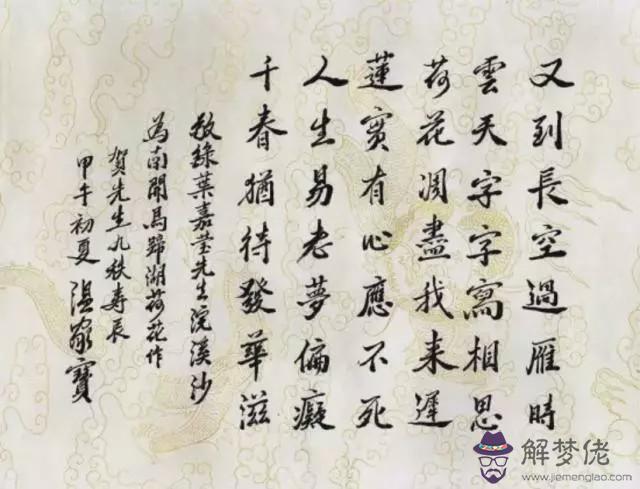 又到長空過雁時
雲天字字寫相思
荷花凋盡我来遲
蓮實有心應不死
人生易老夢偏癡
千春猶待發華滋
敬錄葉嘉莹先生浣溪沙
為南開馬蹄湖荷花作
賀先生九秩寿辰
甲午初夏 温家寶
解梦佬
www.jiemenglao.com